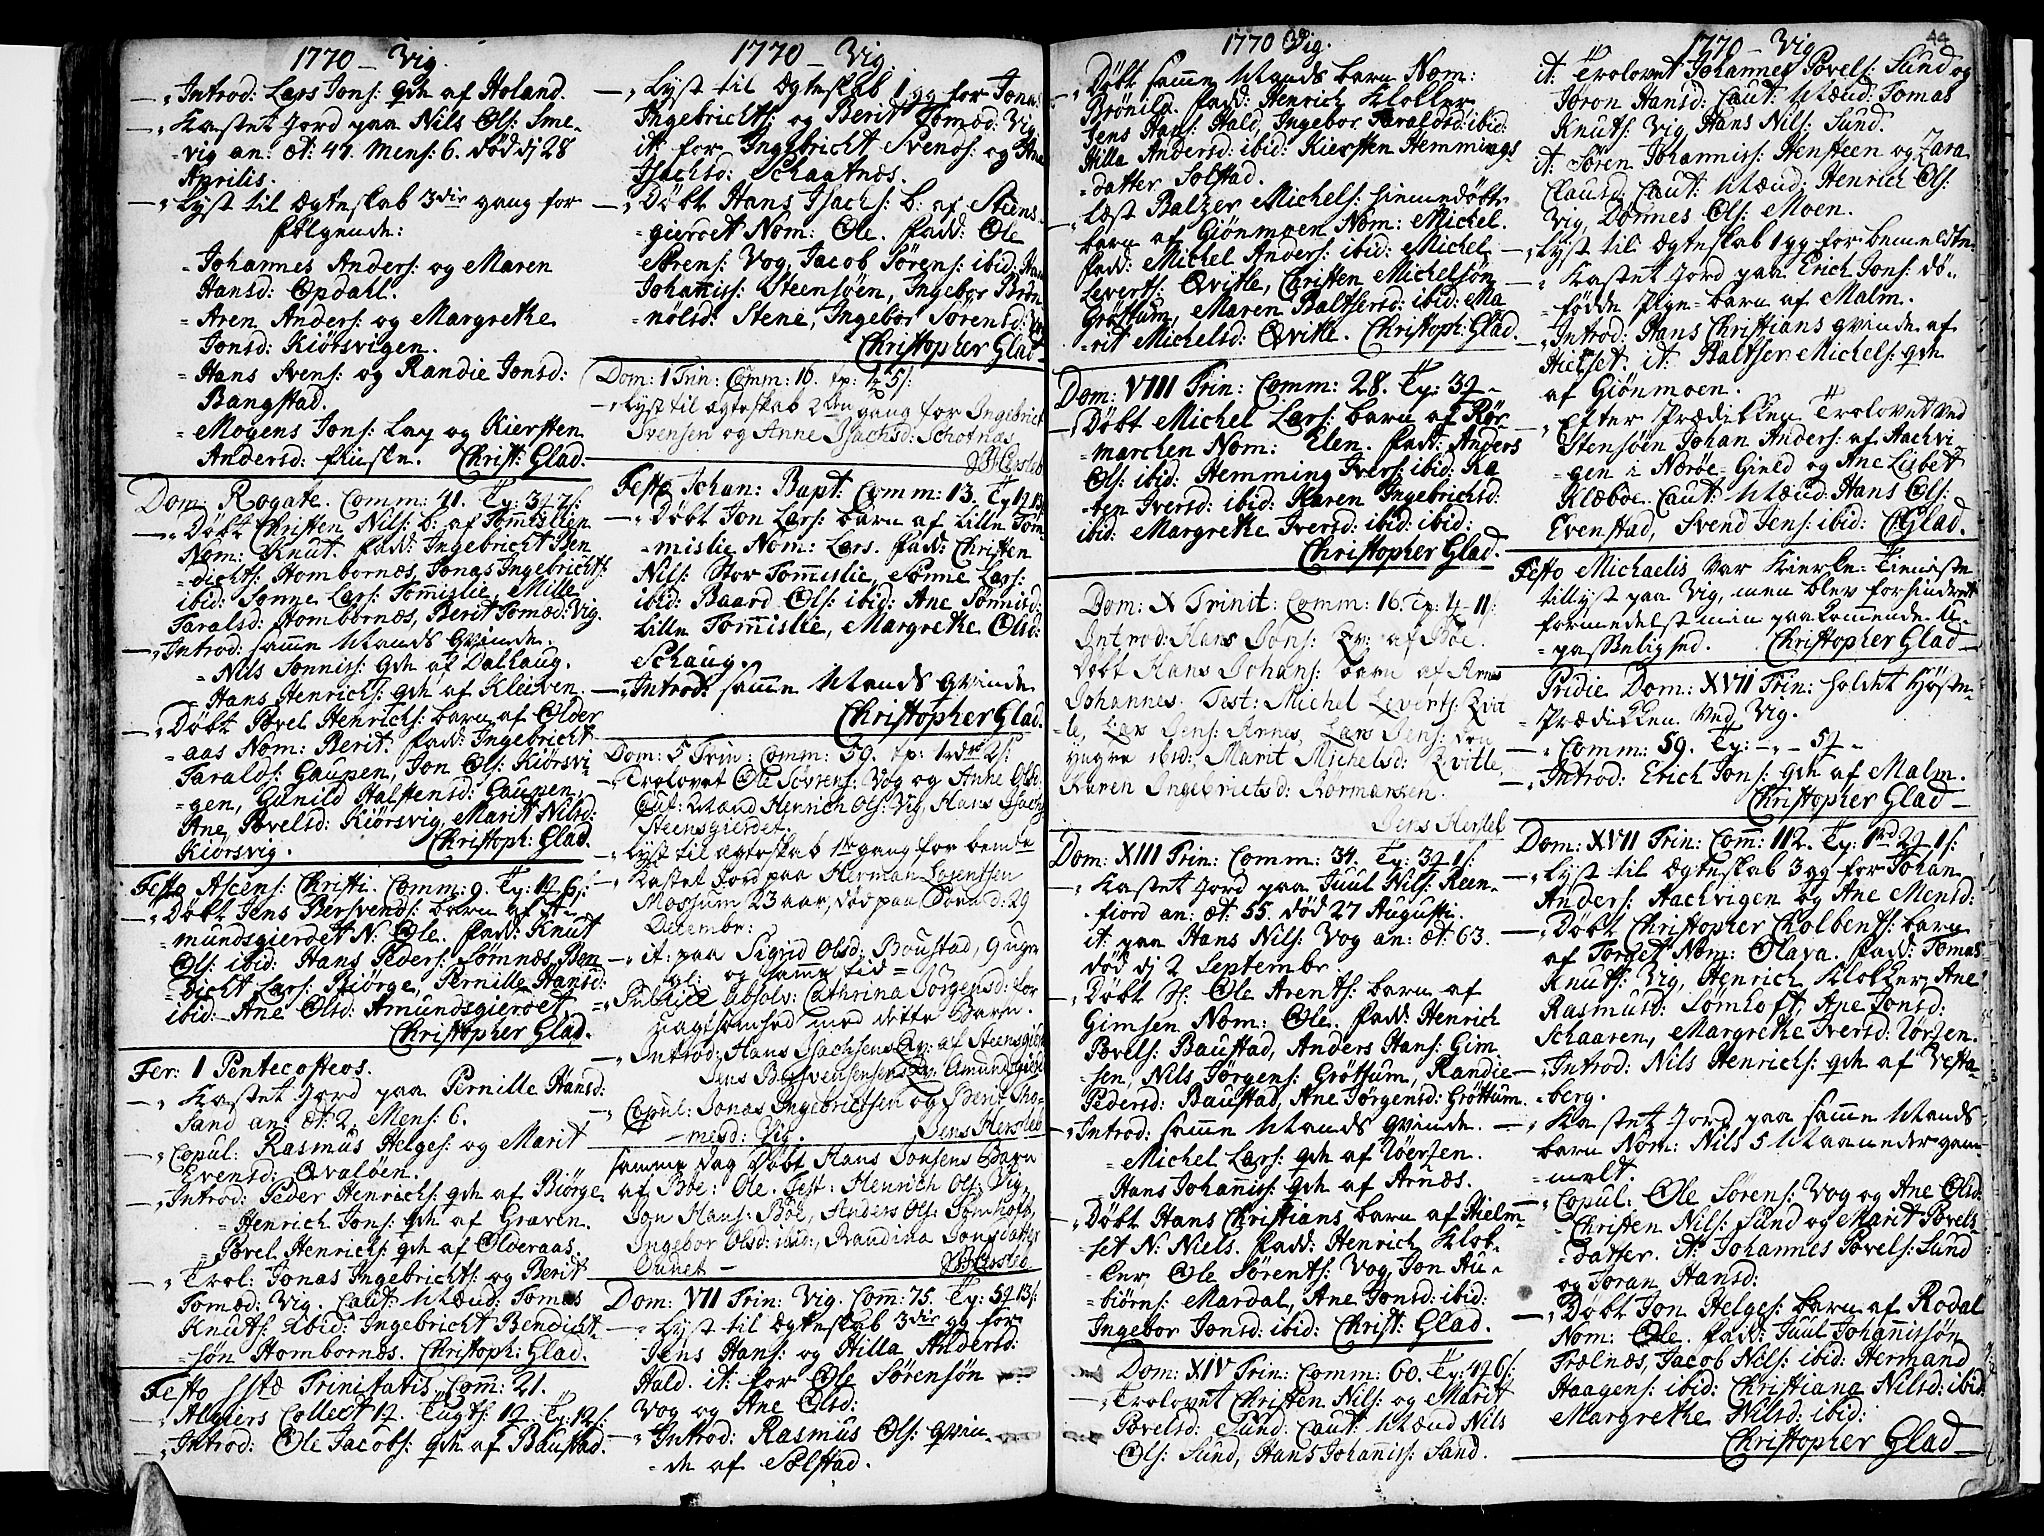 1770 – Vig.
–„ Introd: Lars Jons: qde af Holand.
–„ Kastet Jord paa Nils Ols: Sme-
vig an: æt: 41. Mens: 6. død dj 28
Aprilis.
–„ Lyst til Ægteskab 3die gang for
følgende:
= Johannes Anders: og Maren
Hansd: Opdahl.
= Aren Anders: og Margrethe
Jonsd: Kiørsvigen.
= Hans Svens: og Randie Jonsd:
Bangstad.
= Mogens Jons: Lap og Kiersten
Andersd: finske. Christ: Glad.
Dom: Rogate. Comm: 41. Tp: 3
–„ Døbt Christen Nils: b: af Tomislien
Nom: Knut. fadd: Ingebricht Ben
=dichts: Hombornæs, Jonas Ingebrichts:
ibid: Sønne Lars: Tomislie, Mille
Taralsd: Hombornæs, Berit Tomæd: Vig.
–„ Introd: samme Mands Qvinde.
= Nils Sønniss: qde af Dalhaug.
= Hans Henrichs: qde af Kleiven.
–„ Døbt Povel Henrichs: barn af Older
=aas Nom: Berit. fadd: Ingebricht
Taralds: Gaupen, Jon Ols: Kiørsvi-
=gen, Gunild Halstensd: Gaupen,
Ane Povelsd: Kiørsvig, Marit Nilsd:
Kiørsvig. Christoph: Glad.
Festo Ascens: Christi. Comm: 9. Tp:
–„ Døbt Jens Bersvends: barn af A-
=mundsgierdet N: Ole. fadd: Knut
Ols: ibid: Hans Peders: Sømnæs, Ben
=dicht Lars: Biørge, Pernille Hansd:
ibid: Ane Olsd: Amundsgierdet.
Christopher Glad.
Fer: 1 Pentecostes.
–„ Kastet Jord paa Pernille Hansd:
Sand an: æt: 2. Mens: 6.
–„ Copul: Rasmus Helges: og Marit
Evensd: Qvaløen.
–„ Introd: Peder Henrichs: qde af Biørge.
= Henrich Jons: qde af Graven.
= Povel Henrichs: qde af Olderaas.
–„ Trol: Jonas Ingebrichts: og Berit
Tomæd: Vig. Caut: Mænd: Tomas
Knuts: ibid: Ingebricht Bendicht
=søn Hombornæs. Christoph: Glad.
Festo SStæ Trinitatis Com: 21.
–„ Algiers Collect
–„ Introd: Ole Jacobs: qde af Baustad.
1770 – Vig.
–„ Lyst til Ægteskab 1 gg for Jonas
Ingebrichts: og Berit Tomæd: Vig
it: for Ingebricht Svends: og Ane
Isachsd: Schaatnæs.
–„ Døbt Hans Isachs: b: af Stens-
=gierdet Nom: Ole. fadd: Ole
Sørens: Vog, Jacob Sørens: ibid:
Johaniss: Steensøen, Ingebor Brøn
=nolsd: Stene, Ingebor Sørensd:
Christopher Glad
Dom: 1 Trin: Comm: 16.
–„ Lyst til ægteskab 2den gang for Ingebrict
Svensen og Anne Isachsd: Schotnæs
JHersleb
Festo Johan: Bapt: Comm: 13.
–„ Døbt Jon Lars: barn af Lille Tom
=mislie Nom: Lars. fadd: Christen
Nils: Stor Tomislie, Sønne Lars:
ibid: Baard Ols: ibid: Ane Sønnisd:
Lille Tomislie, Margrethe Olsd:
Schaug.
–„ Introd: samme Mands Qvinde
Christopher Glad.
Dom: 5 Trin: Comm: 59.
–„ Trolovet Ole Sørens: Vog og Anne Olsd:
Caut: Mænd Henrich Ols: Vig, Hans Isachs
Steensgierdet.
–„ Lyst til ægteskab 1te gang for bemte
–„ Kastet Jord paa Herman Lorentsen
Mossum 23 aar, død paa Søen d: 29
Decembr:
–„ it: paa Sigrid Olsd: Baustad, 9 uger
gl: og samme tid =
–„ Publice absolv: Cathrina Jørgensd: for
uagtsomhed med dette Barn.
–„ Introd: Hans Isachsens Qv: af Steensgierd
Jens Bersvensens Qv: Amundsgierd
–„ Copul: Jonas Ingebrictsen og Berit Tho-
mesd: Vig. Jens Hersleb
samme dag Døbt Hans Jonsens Barn
af Bøe: Ole. Test: Henrich Ols: Vig,
Jon Hans: Bøe, Anders Ols: Somhoft,
Ingebor Olsd: ibid:, Randina Jonsdatter
JHersleb
Dom: VII Trin: Vig. Com: 75.
–„ Lyst til Ægteskab 3die gg for
Jens Hans: og Hilla Andersd:
Hald. it: for Ole Sørensøn
Vog og Ane Olsd:
–„ Introd: Rasmus Ols: qvin-
=de af Solstad.
1770 Vig.
–„ Døbt samme Mands barn Nom:
Brønild. fadd: Henrich Klokker,
Jens Hans: Hald, Ingebor Taraldsd: ibid:
Hilla Andersd: ibid: Kiersten Hemmings-
=datter Solstad.
–„ Læst Balzer Michels: hiemmedøbte
barn af Giønmoen Nom: Michel.
fadd: Michel Anders: ibid: Michel
Leverts: Qvitle, Christen Michelsøn
Grøttum, Maren Baltsersd: ibid: Ma
=rit Michelsd: Qvitle. Christoph: Glad.
Dom: VIII Trin: Comm: 28. Tp: 3
–„ Døbt Michel Lars: barn af Rør
=marchen Nom: Elen. fadd: Anders
Ols: ibid: Hemming Ivers: ibid: Ka
=ren Iversd: ibid: Karen Ingebrichsd:
ibid: Margrethe Iversd: ibid: ibid:
Christopher Glad.
Dom: X Trinit: Comm: 16.
Introd: Hans Jons: Qv: af Bøe.
Døbt Hans Johans: barn af Arnes
Johannes. Test: Michel Leverts: Qvit
=le, Lars Jens: Arnes, Lars Jens: den
yngre ibid: Marit Michelsd: Qvitle,
Karen Ingebrictsd: Rørmarken.
Jens Hersleb
Dom: XIII Trin: Comm: 34.
–„ Kastet Jord paa Juul Nils: Reen-
=fiord an: æt: 55. død 27 Augusti.
it: paa Hans Nils: Vog an: æt: 63.
død dj 2 Septembr.
–„ Døbt S: Ole Arents: barn af
Gimsen Nom: Ole. fadd: Henrich
Povels: Baustad, Anders Hans: Gim-
sen, Nils Jørgens: Grøttum, Randie
Pedersd: Baustad, Ane Jørgensd: Grøttum
–„ Introd: samme Mands Qvinde.
= Michel Lars: qde af
= Hans Johaniss: qde af Arnæs.
–„ Døbt Hans Christians barn af Hielm
=set N: Niels. fadd: Henrich Klok-
=ker, Ole Sørents: Vog, Jon Au-
=biørns: Mardal, Ane Jonsd: ibid:
Ingebor Jonsd: ibid: Christ: Glad.
Dom: XIV Trin: Comm: 60.
–„ Trolovet Christen Nils: og Marit
Povelsd: Sund. Caut: Mænd Nils
Ols: Sund, Hans Johaniss: Sand.
1770 – Vig
44
it: Trolovet Johannes Povels: Sund og
Joron Hansd: Caut: Mænd: Tomas
Knuts: Vig, Hans Nils: Sund.
it: Søren Johanniss: Hensteen og Zara
Clausd: Caut: Mænd: Henrich Ols:
Vig, Dønnes Ols: Moen.
–„ Lyst til Ægteskab 1 gg for bemeldte.
–„ Kastet Jord paa Erich Jons: dø-
=fødde Pige-barn af Malm.
–„ Introd: Hans Christians qvinde af
Hielset. it: Baltser Michels: qde
af Giønmoen.
–„ Efter Prædikken Trolovet ved
Stensøen Johan Anders: af Aachvi-
=gen i Nærøe-Gield og Ane Lisbet
Klæboe. Caut: Mænd: Hans Ols:
Evenstad, Svend Jens: ibid: C: Glad.
Festo Michaelis var Kierke-Tieneste
tillyst paa Vig, men blev forhindret
formedelst min paakommende U-
=pasßelighed. Christopher Glad
Pridie Dom: XVII Trin: holdet Høste-
=Prædikken ved Vig.
–„ Comm: 59.
–„ Introd: Erich Jons: qde af Malm.
Christopher Glad
Dom: XVII Trin: Com: 112.
–„ Lyst til Ægteskab 3 gg for Johan
Anders: Aachvigen og Ane Mensd:
–„ Døbt Christopher Cholbents: barn
af Torget Nom: Olava. fadd: Tomas
Knuts: Vig, Henrich Klokker, Ane
Rasmusd: Somhoft, Ane Jonsd:
Schaaren, Margrethe Iversd:
–„ Introd: Nils Henrichs: qde af Vesta-
=berg.
–„ Kastet Jord paa samme Mands
barn Nom: Nils 5 Maaneder gam-
=melt.
–„ Copul: Ole Sørens: Vog og Ane Olsd:
= Christen Nils: Sund og Marit Povels-
=datter. it: Johannes Povels: Sund
og Joran Hansd:
–„ Døbt Jon Helges: barn af Rodal
Nom: Ole. fadd: Juul Johanissøn
Trælnæs, Jacob Nils: ibid: Hermand
Haagens: ibid: Christiana Nilsd: ibid
Margrethe Nilsd: ibid:
Christopher Glad